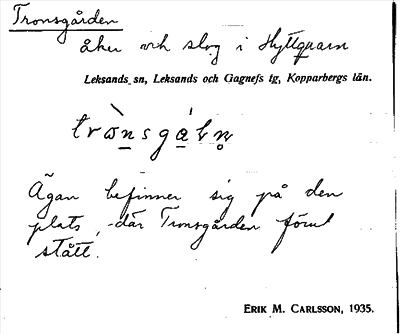 Tronsgården
åker och slog i Hyttqvarn
Leksands sn, Leksands och Gagnefs tg, Kopparbergs län.
Ägan befinner sig på den
plats, där Tronsgården förut
stått.
ERIK M. CARLSSON, 1935.